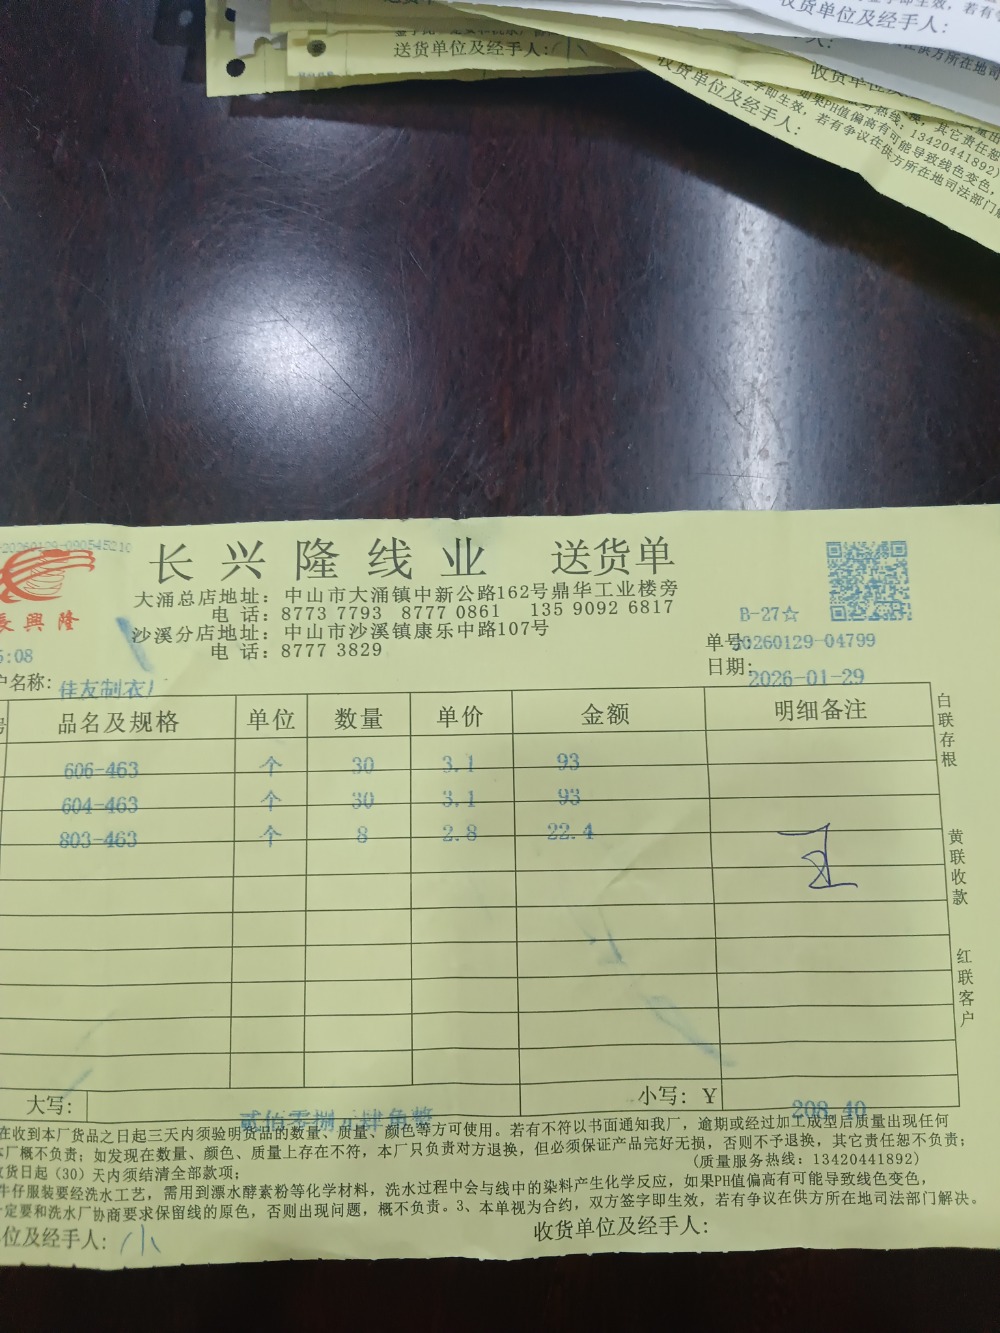 送货单位及经手人:
收货单位及经手人:
收货单位及经手人:
签字即生效,若有争议在供方所在地司法部门
如果PH值偏高有可能导致线色变色,
热线:13420441892)
其它责任恕
20260129-090545210
长兴隆线业 送货单
大涌总店地址:中山市大涌镇中新公路162号鼎华工业楼旁
电话:8773 7793 8777 0861 135 9092 6817
沙溪分店地址:中山市沙溪镇康乐中路107号
电话:8777 3829
興隆
B-27☆
5:08
单号:20260129-04799
日期:2026-01-29
户名称:佳友制衣厂
品名及规格 单位 数量 单价 金额 明细备注
606-463 个 30 3.1 93
604-463 个 30 3.1 93
803-463 个 8 2.8 22.4
白联存根
黄联收款
红联客户
大写:贰佰零捌元肆角整 小写:¥ 208.40
在收到本厂货品之日起三天内须验明货品的数量、质量、颜色等方可使用。若有不符以书面通知我厂,逾期或经过加工成型后质量出现任何
本厂概不负责;如发现在数量、颜色、质量上存在不符,本厂只负责对方退换,但必须保证产品完好无损,否则不予退换,其它责任恕不负责;
收货日起(30)天内须结清全部款项; (质量服务热线:13420441892)
牛仔服装要经洗水工艺,需用到漂水酵素粉等化学材料,洗水过程中会与线中的染料产生化学反应,如果PH值偏高有可能导致线色变色,
一定要和洗水厂协商要求保留线的原色,否则出现问题,概不负责。3、本单视为合约,双方签字即生效,若有争议在供方所在地司法部门解决。
位及经手人:小 收货单位及经手人: